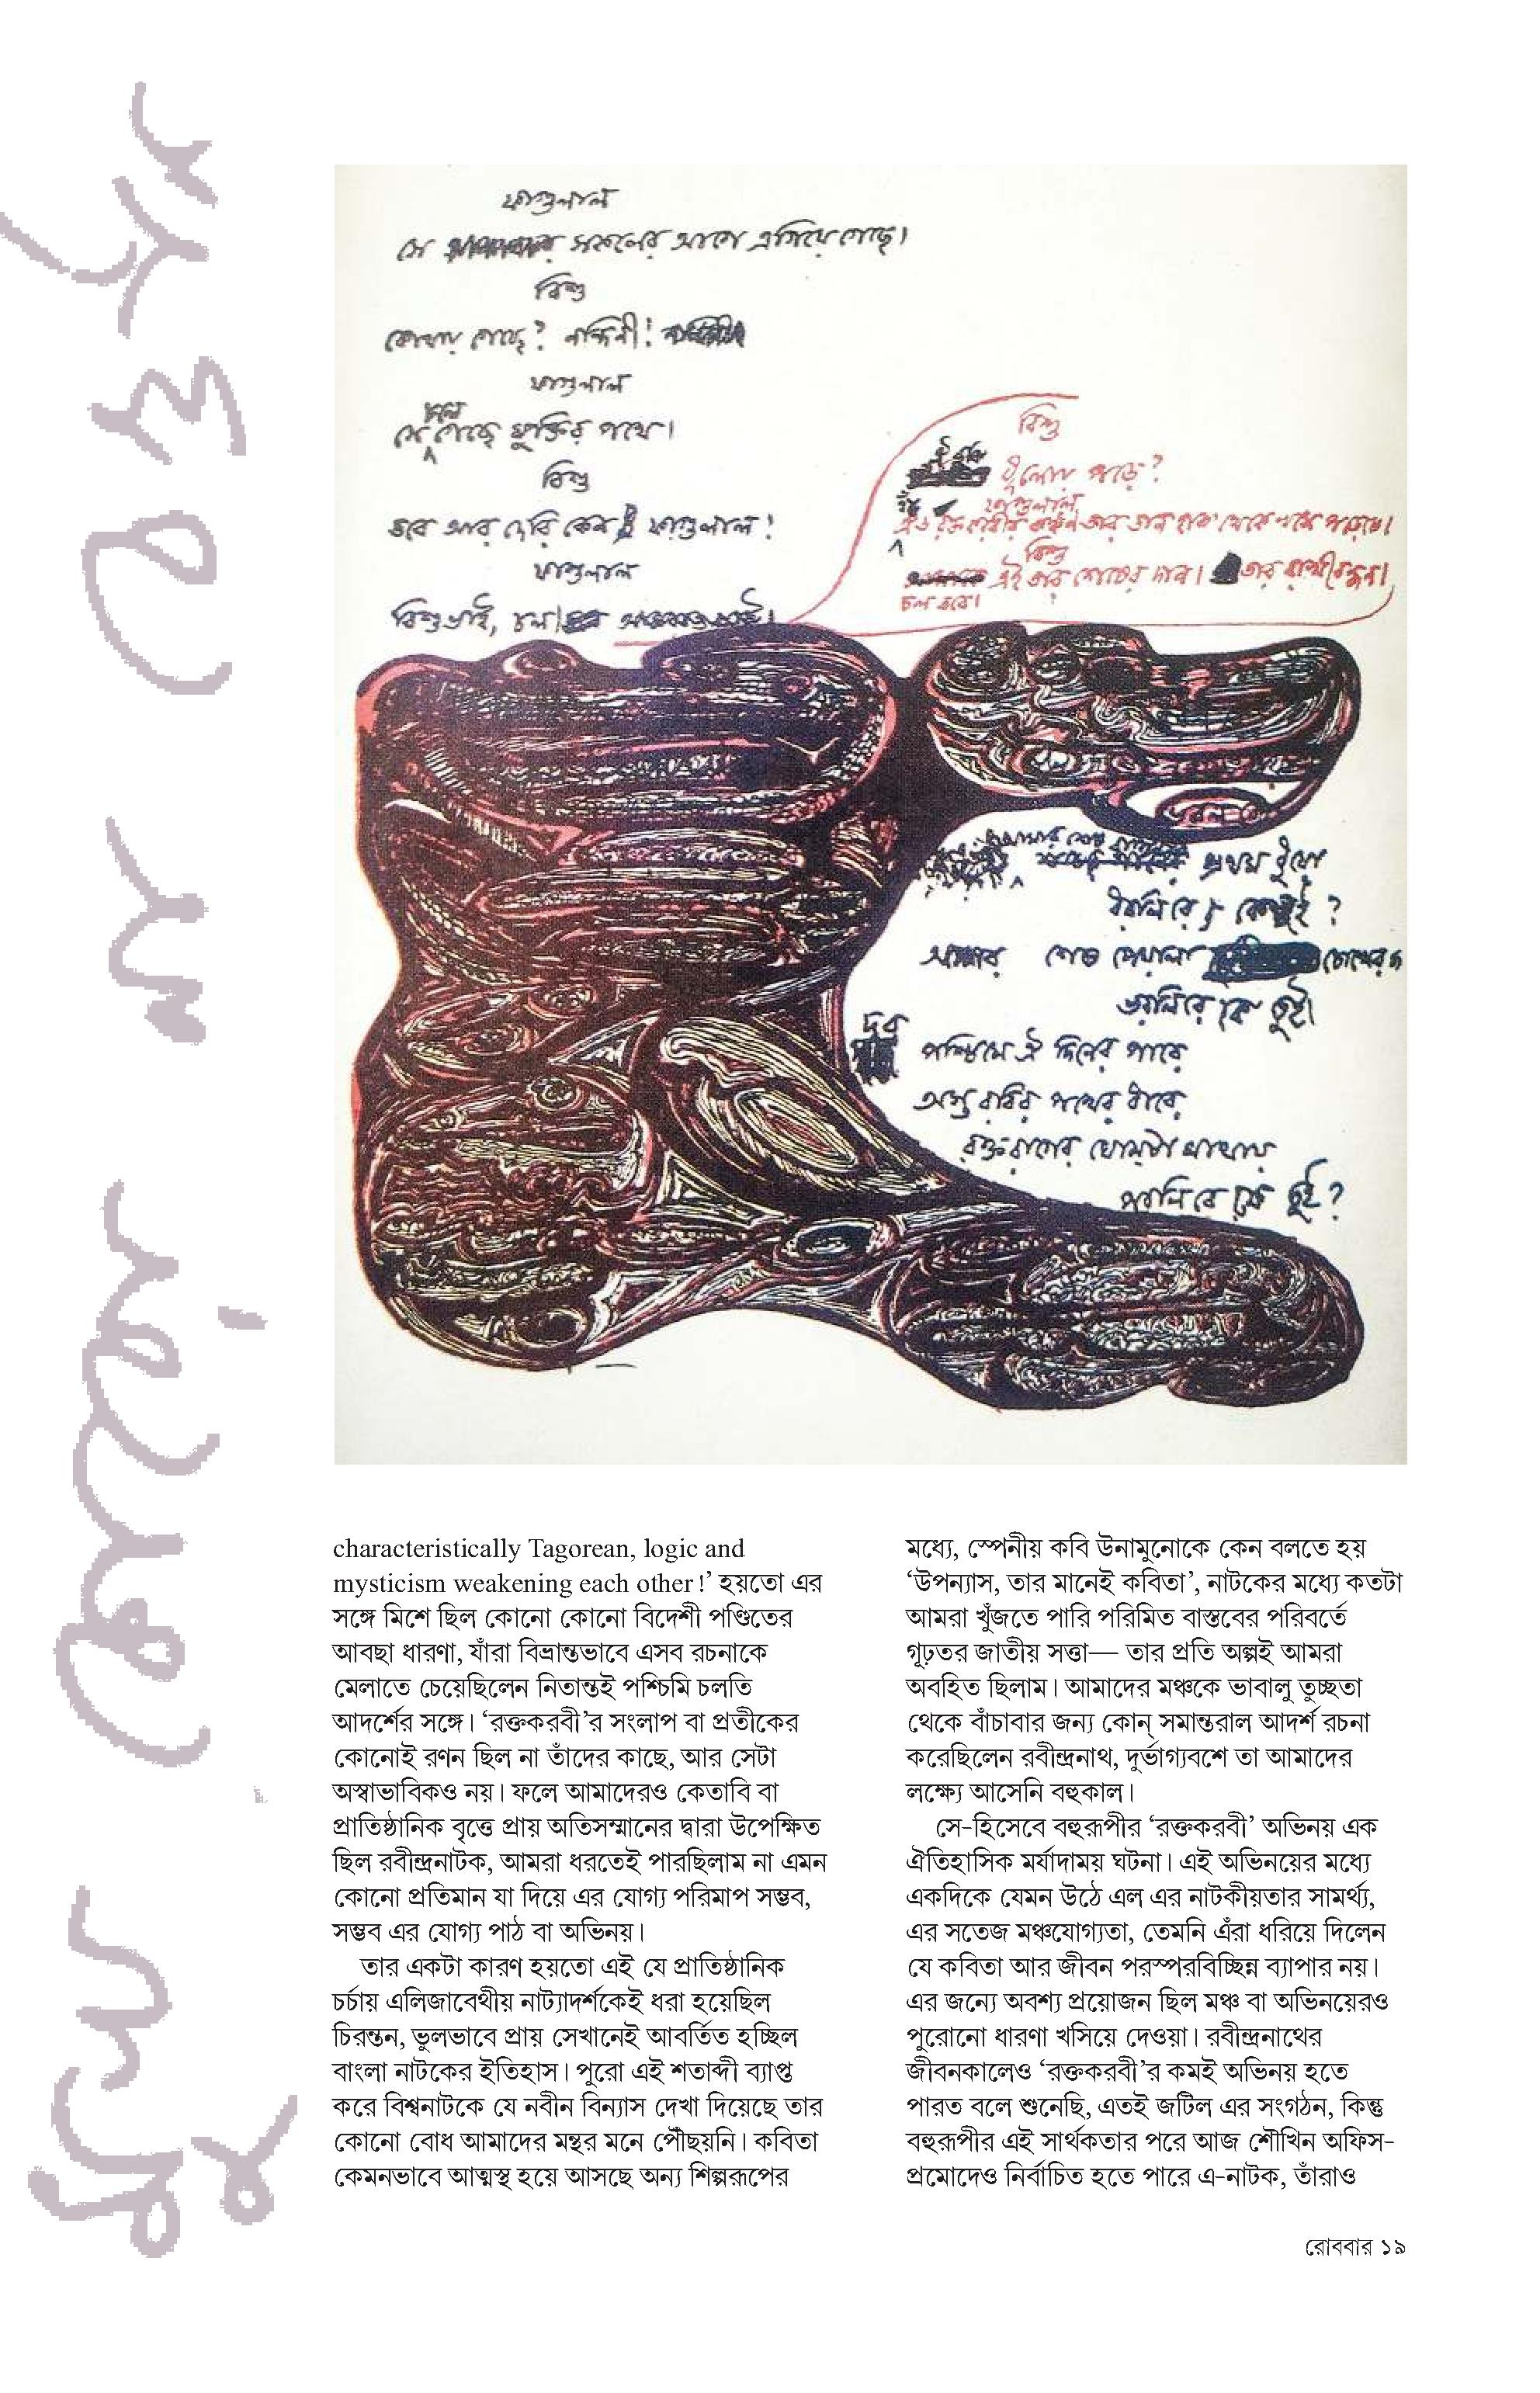 ফাগুলাল
সে সকলের আগে এগিয়ে গেছে।
বিশু
কোথায় গেছে? নন্দিনী!
ফাগুলাল
সে চলে গেছে মুক্তির পথে।
বিশু
তবে আর দেরি কেন ফাগুলাল!
ফাগুলাল
বিশুভাই, চল
বিশু
ধুলোয় পড়ে?
ফাগুলাল
বিশু
এই তার শেষের দান।
চল তবে।
প্রথম ছুঁয়ে
শেষ পেয়ালা
ভরলি রে কে তুই।
পশ্চিমে ঐ দিনের পারে
অস্ত রবির পথের ধারে
রক্তরাগের ঘোমটা মাথায়
পরলি রে কে তুই?
characteristically Tagorean, logic and
mysticism weakening each other!’ হয়তো এর
সঙ্গে মিশে ছিল কোনো কোনো বিদেশী পণ্ডিতের
আবছা ধারণা, যাঁরা বিভ্রান্তভাবে এসব রচনাকে
মেলাতে চেয়েছিলেন নিতান্তই পশ্চিমি চলতি
আদর্শের সঙ্গে। ‘রক্তকরবী’র সংলাপ বা প্রতীকের
কোনোই রণন ছিল না তাঁদের কাছে, আর সেটা
অস্বাভাবিকও নয়। ফলে আমাদেরও কেতাবি বা
প্রাতিষ্ঠানিক বৃত্তে প্রায় অতিসম্মানের দ্বারা উপেক্ষিত
ছিল রবীন্দ্রনাটক, আমরা ধরতেই পারছিলাম না এমন
কোনো প্রতিমান যা দিয়ে এর যোগ্য পরিমাপ সম্ভব,
সম্ভব এর যোগ্য পাঠ বা অভিনয়।
তার একটা কারণ হয়তো এই যে প্রাতিষ্ঠানিক
চর্চায় এলিজাবেথীয় নাট্যাদর্শকেই ধরা হয়েছিল
চিরন্তন, ভুলভাবে প্রায় সেখানেই আবর্তিত হচ্ছিল
বাংলা নাটকের ইতিহাস। পুরো এই শতাব্দী ব্যাপ্ত
করে বিশ্বনাটকে যে নবীন বিন্যাস দেখা দিয়েছে তার
কোনো বোধ আমাদের মন্থর মনে পৌঁছয়নি। কবিতা
কেমনভাবে আত্মস্থ হয়ে আসছে অন্য শিল্পরূপের
মধ্যে, স্পেনীয় কবি উনামুনোকে কেন বলতে হয়
‘উপন্যাস, তার মানেই কবিতা’, নাটকের মধ্যে কতটা
আমরা খুঁজতে পারি পরিমিত বাস্তবের পরিবর্তে
গূঢ়তর জাতীয় সত্তা— তার প্রতি অল্পই আমরা
অবহিত ছিলাম। আমাদের মঞ্চকে ভাবালু তুচ্ছতা
থেকে বাঁচাবার জন্য কোন্ সমান্তরাল আদর্শ রচনা
করেছিলেন রবীন্দ্রনাথ, দুর্ভাগ্যবশে তা আমাদের
লক্ষ্যে আসেনি বহুকাল।
সে-হিসেবে বহুরূপীর ‘রক্তকরবী’ অভিনয় এক
ঐতিহাসিক মর্যাদাময় ঘটনা। এই অভিনয়ের মধ্যে
একদিকে যেমন উঠে এল এর নাটকীয়তার সামর্থ্য,
এর সতেজ মঞ্চযোগ্যতা, তেমনি এঁরা ধরিয়ে দিলেন
যে কবিতা আর জীবন পরস্পরবিচ্ছিন্ন ব্যাপার নয়।
এর জন্যে অবশ্য প্রয়োজন ছিল মঞ্চ বা অভিনয়েরও
পুরোনো ধারণা খসিয়ে দেওয়া। রবীন্দ্রনাথের
জীবনকালেও ‘রক্তকরবী’র কমই অভিনয় হতে
পারত বলে শুনেছি, এতই জটিল এর সংগঠন, কিন্তু
বহুরূপীর এই সার্থকতার পরে আজ শৌখিন অফিস-
প্রমোদেও নির্বাচিত হতে পারে এ-নাটক, তাঁরাও
রোববার ১৯